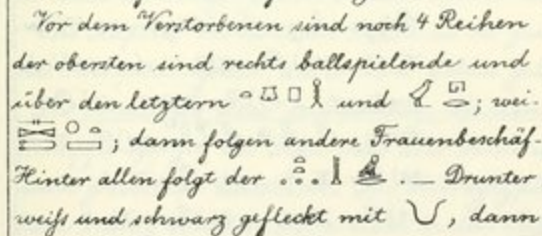 Vor dem Verstorbenen sind noch 4 Reihen
der obersten sind rechts ballspielende und
über den letztern und ; wei-
; dann folgen andere Frauenbeschäf-
Hinter allen folgt der . — Drunter
weiſs und schwarz gefleckt mit , dann